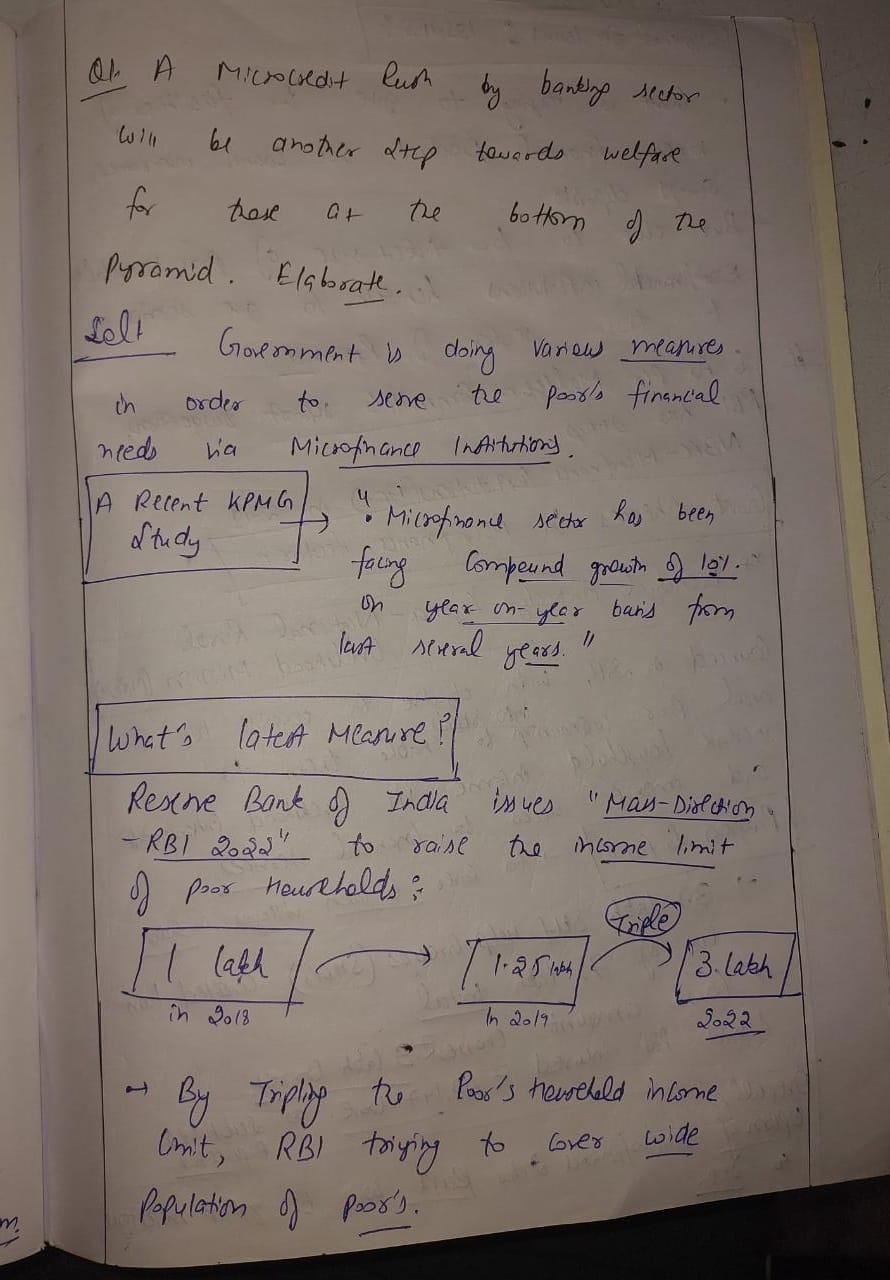 Q1. A Microcredit Rush by banking sector
will be another step towards welfare
for those at the bottom of the
Pyramid. Elaborate.
Sol:
Government is doing various measures
in order to serve the poor's financial
needs via Microfinance Institutions.
A Recent KPMG
Study
→ " Microfinance sector has been
facing Compound growth of 10%.
on year-on-year basis from
last several years."
What's latest Measure?
Reserve Bank of India issues "Mass-Direction
- RBI 2022" to raise the income limit
of poor Households:
1 lakh
in 2018
1.25 lakh
in 2019
Triple
3 Lakh
2022
→ By Tripling the Poor's Household income
limit, RBI triying to cover wide
Population of poor's.